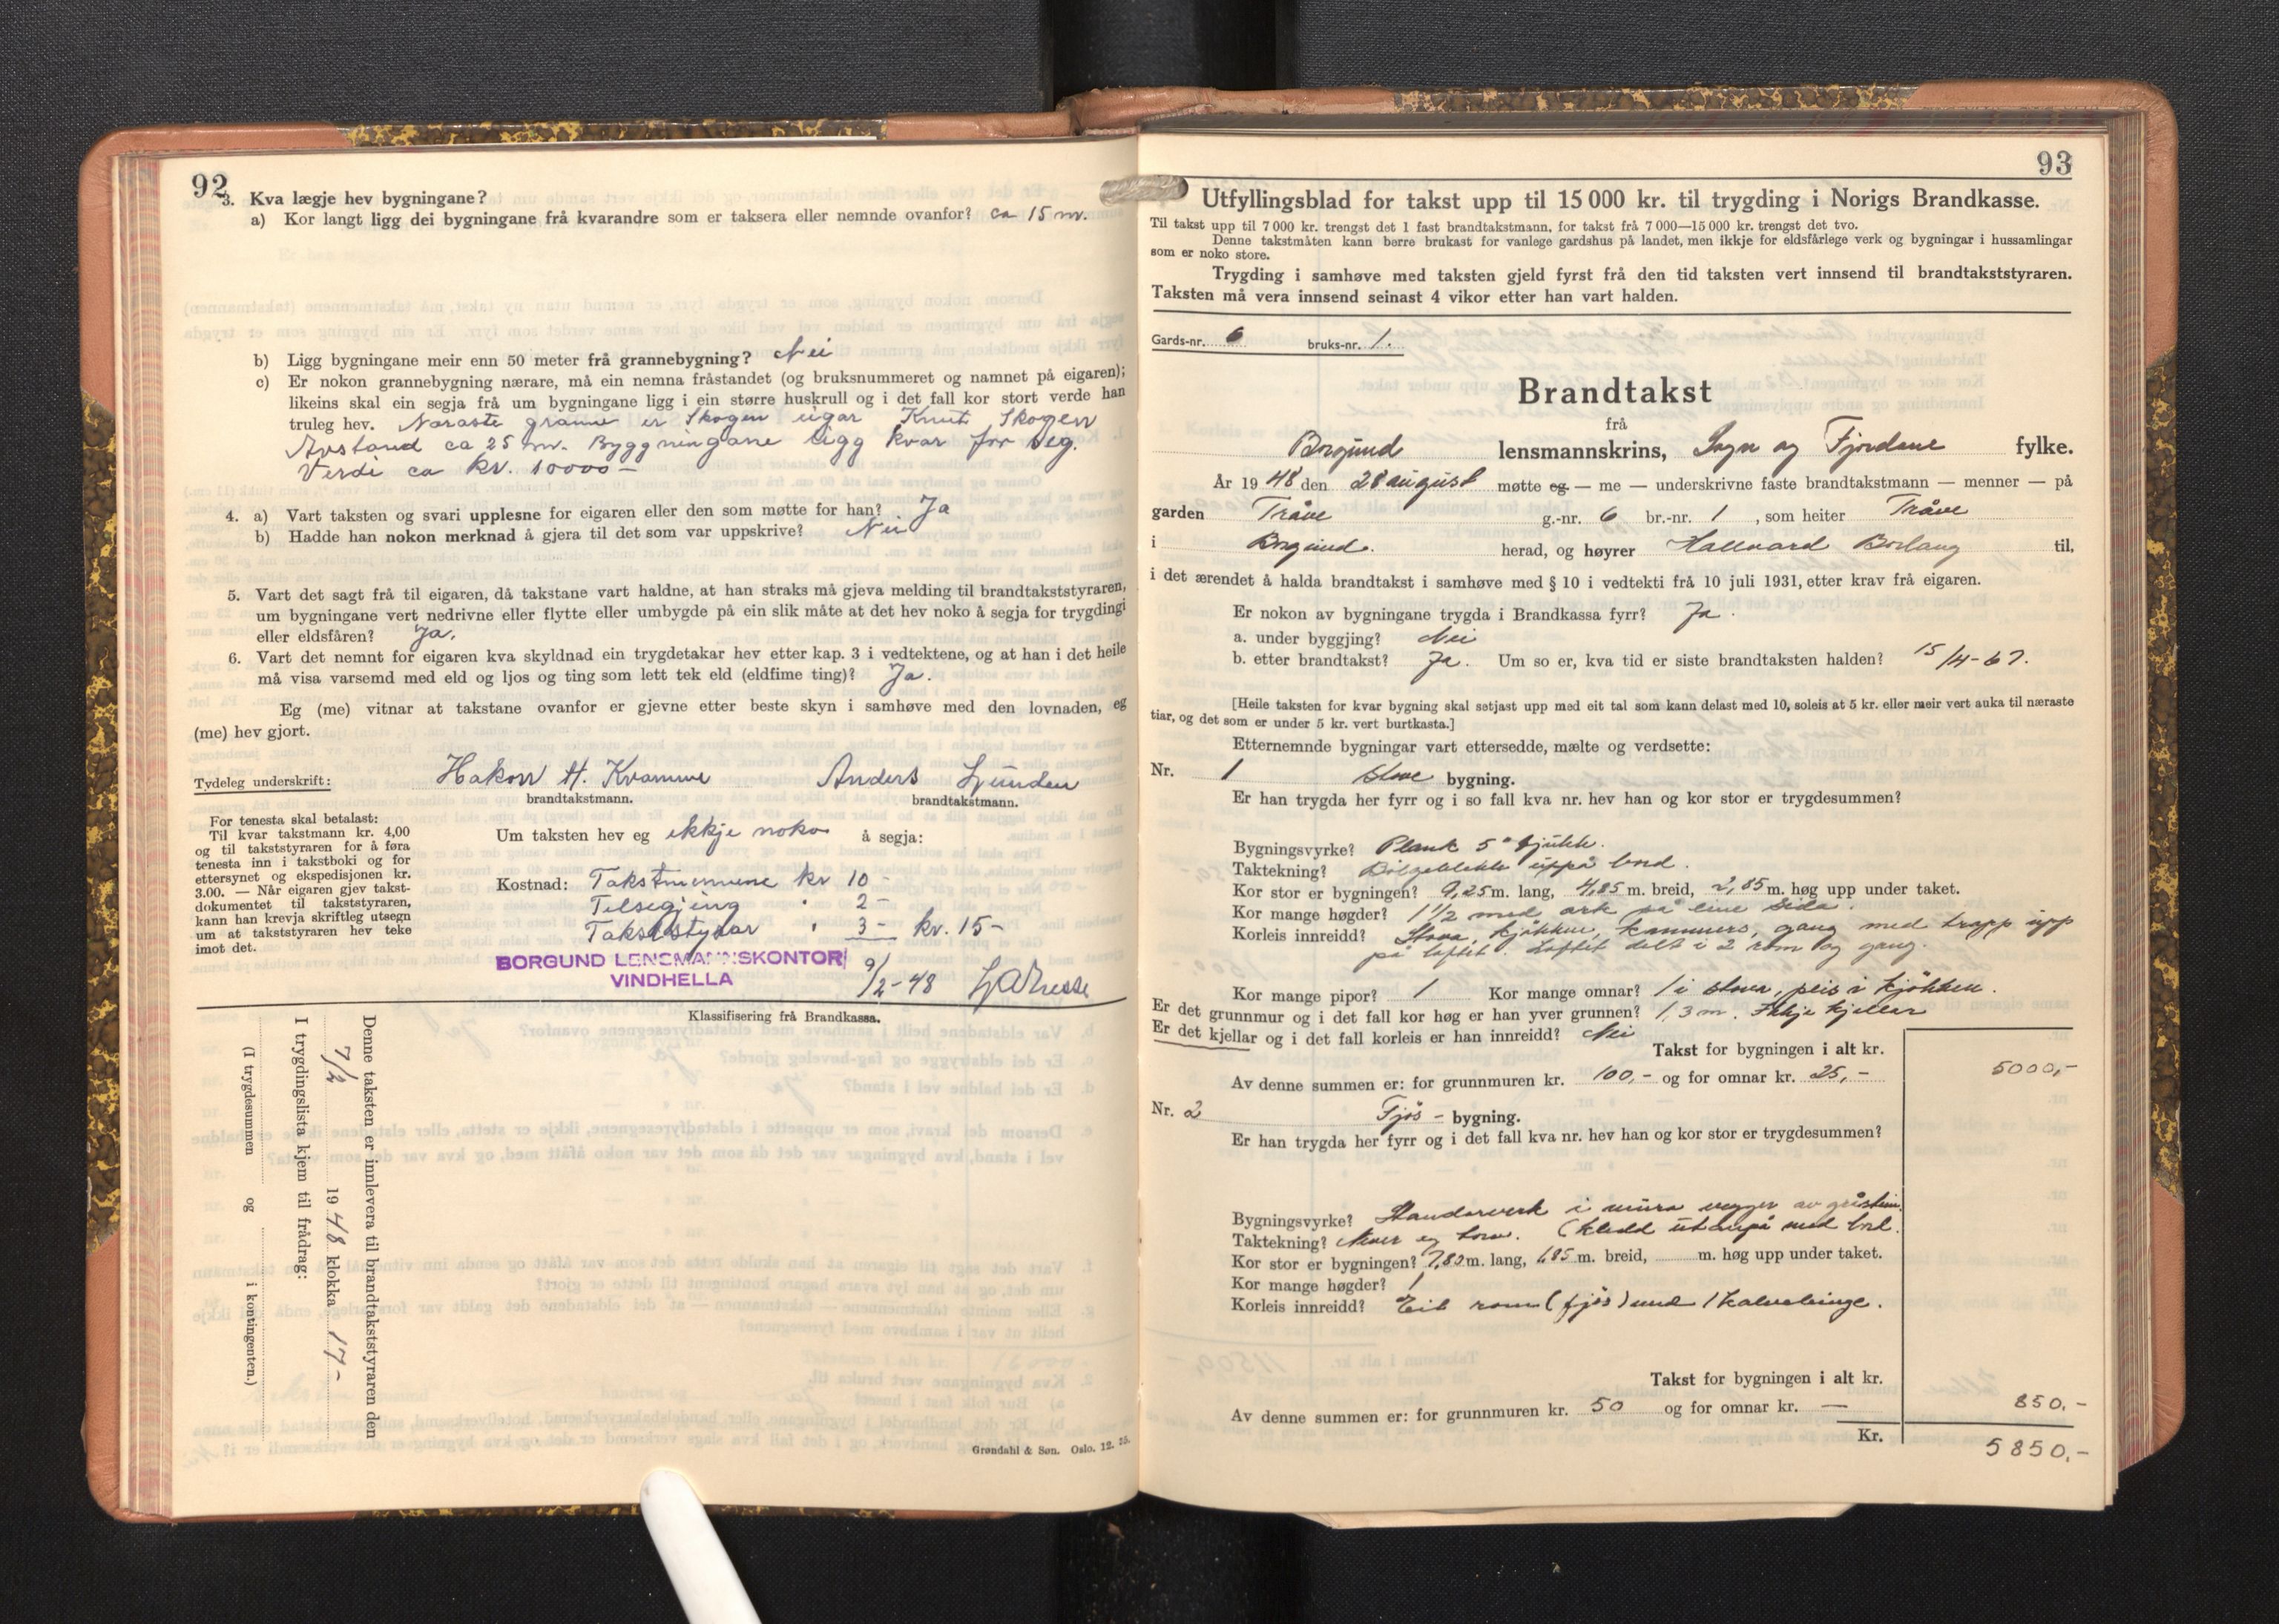 92
3. Kva lægje hev bygningane?
a) Kor langt ligg dei bygningane frå kvarandre som er taksera eller nemnde ovanfor? ca 15 m.
b) Ligg bygningane meir enn 50 meter frå grannebygning? Nei
c) Er nokon grannebygning nærare, må ein nemna fråstandet (og bruksnummeret og namnet på eigaren);
likeins skal ein segja frå um bygningane ligg i ein større huskrull og i det fall kor stort verde han
truleg hev. Næraste granne er Skogen eigar Knut Skogen
Avstand ca 25 m. Byggningane ligg kvar for seg.
Verdi ca kr. 10000-
4. a) Vart taksten og svari upplesne for eigaren eller den som møtte for han? Ja
b) Hadde han nokon merknad å gjera til det som var uppskrive? Nei
5. Vart det sagt frå til eigaren, då takstane vart haldne, at han straks må gjeva melding til brandtakststyraren,
um bygningane vert nedrivne eller flytte eller umbygde på ein slik måte at det hev noko å segja for trygdingi
eller eldsfåren? Ja.
6. Vart det nemnt for eigaren kva skyldnad ein trygdetakar hev etter kap. 3 i vedtektene, og at han i det heile
må visa varsemd med eld og ljos og ting som lett tek eld (eldfime ting)? Ja.
Eg (me) vitnar at takstane ovanfor er gjevne etter beste skyn i samhøve med den lovnaden, eg
(me) hev gjort.
Tydeleg underskrift: Hakon H. Kvamme Anders Ljunden
brandtakstmann. brandtakstmann.
For tenesta skal betalast:
Til kvar takstmann kr. 4,00
og til takststyraren for å føra
tenesta inn i takstboki og for
ettersynet og ekspedisjonen kr.
3.00. — Når eigaren gjev takst-
dokumentet til takststyraren,
kann han krevja skriftleg utsegn
um at takststyraren hev teke
imot det.
Um taksten hev eg ikkje noko å segja:
Kostnad: Takstmennene kr 10 -
Tilsegjing " 2 -
Takststyrar " 3 - kr. 15 -
BORGUND LENSMANNSKONTOR
VINDHELLA
9/2-48
Klassifisering frå Brandkassa.
Denne taksten er innlevera til brandtakststyraren den
7/2 1948 klokka 17-
I trygdingslista kjem til frådrag:
(I trygdesummen og i kontingenten.)
Grøndahl & Søn. Oslo. 12. 35.
93
Utfyllingsblad for takst upp til 15 000 kr. til trygding i Norigs Brandkasse.
Til takst upp til 7 000 kr. trengst det 1 fast brandtakstmann, for takst frå 7 000—15 000 kr. trengst det tvo.
Denne takstmåten kann berre brukast for vanlege gardshus på landet, men ikkje for eldsfårlege verk og bygningar i hussamlingar
som er noko store.
Trygding i samhøve med taksten gjeld fyrst frå den tid taksten vert innsend til brandtakststyraren.
Taksten må vera innsend seinast 4 vikor etter han vart halden.
Gards-nr. 6 bruks-nr. 1.
Brandtakst
frå
Borgund lensmannskrins, Sogn og Fjordane fylke.
År 1948 den 28 august møtte eg — me — underskrivne faste brandtakstmann — menner — på
garden Tråve g.-nr. 6 br.-nr. 1, som heiter Tråve
i Borgund. herad, og høyrer Hallvard Borlaug til,
i det ærendet å halda brandtakst i samhøve med § 10 i vedtekti frå 10 juli 1931, etter krav frå eigaren.
Er nokon av bygningane trygda i Brandkassa fyrr? Ja.
a. under byggjing? Nei
b. etter brandtakst? Ja. Um so er, kva tid er siste brandtaksten halden? 15/4-67.
[Heile taksten for kvar bygning skal setjast upp med eit tal som kann delast med 10, soleis at 5 kr. eller meir vert auka til næraste
tiar, og det som er under 5 kr. vert burtkasta.]
Etternemnde bygningar vart ettersedde, mælte og verdsette:
Nr. 1 Stove bygning.
Er han trygda her fyrr og i so fall kva nr. hev han og kor stor er trygdesummen?
Bygningsvyrke? Plank 5" tjukk.
Taktekning? Bölgeblekk uppå bord.
Kor stor er bygningen? 9,25 m. lang, 4,85 m. breid, 2,85 m. høg upp under taket.
Kor mange høgder? 1 1/2 med ark på eine sida.
Korleis innreidd? Stova, kjökken, kammers, gang med trapp upp
på loftet. Loftet delt i 2 rom og gang.
Kor mange pipor? 1 Kor mange omnar? 1 i stova, peis i kjökken.
Er det grunnmur og i det fall kor høg er han yver grunnen? 1,3 m. Ikkje kjellar
Er det kjellar og i det fall korleis er han innreidd? Nei
Takst for bygningen i alt kr. 5000,-
Av denne summen er: for grunnmuren kr. 100,- og for omnar kr. 25,-
Nr. 2 Fjös - bygning.
Er han trygda her fyrr og i det fall kva nr. hev han og kor stor er trygdesummen?
Bygningsvyrke? Standarverk i mura vegger av gråstein.
Taktekning? Never og torv. (kledd utanpå med bord.
Kor stor er bygningen? 7,82 m. lang, 1,85 m. breid, m. høg upp under taket.
Kor mange høgder? 1
Korleis innreidd? Eit rom (fjös) med 1 kalvebinge.
Takst for bygningen i alt kr. 850,-
Av denne summen er: for grunnmuren kr. 50 og for omnar kr. —
Kr. 5850,-